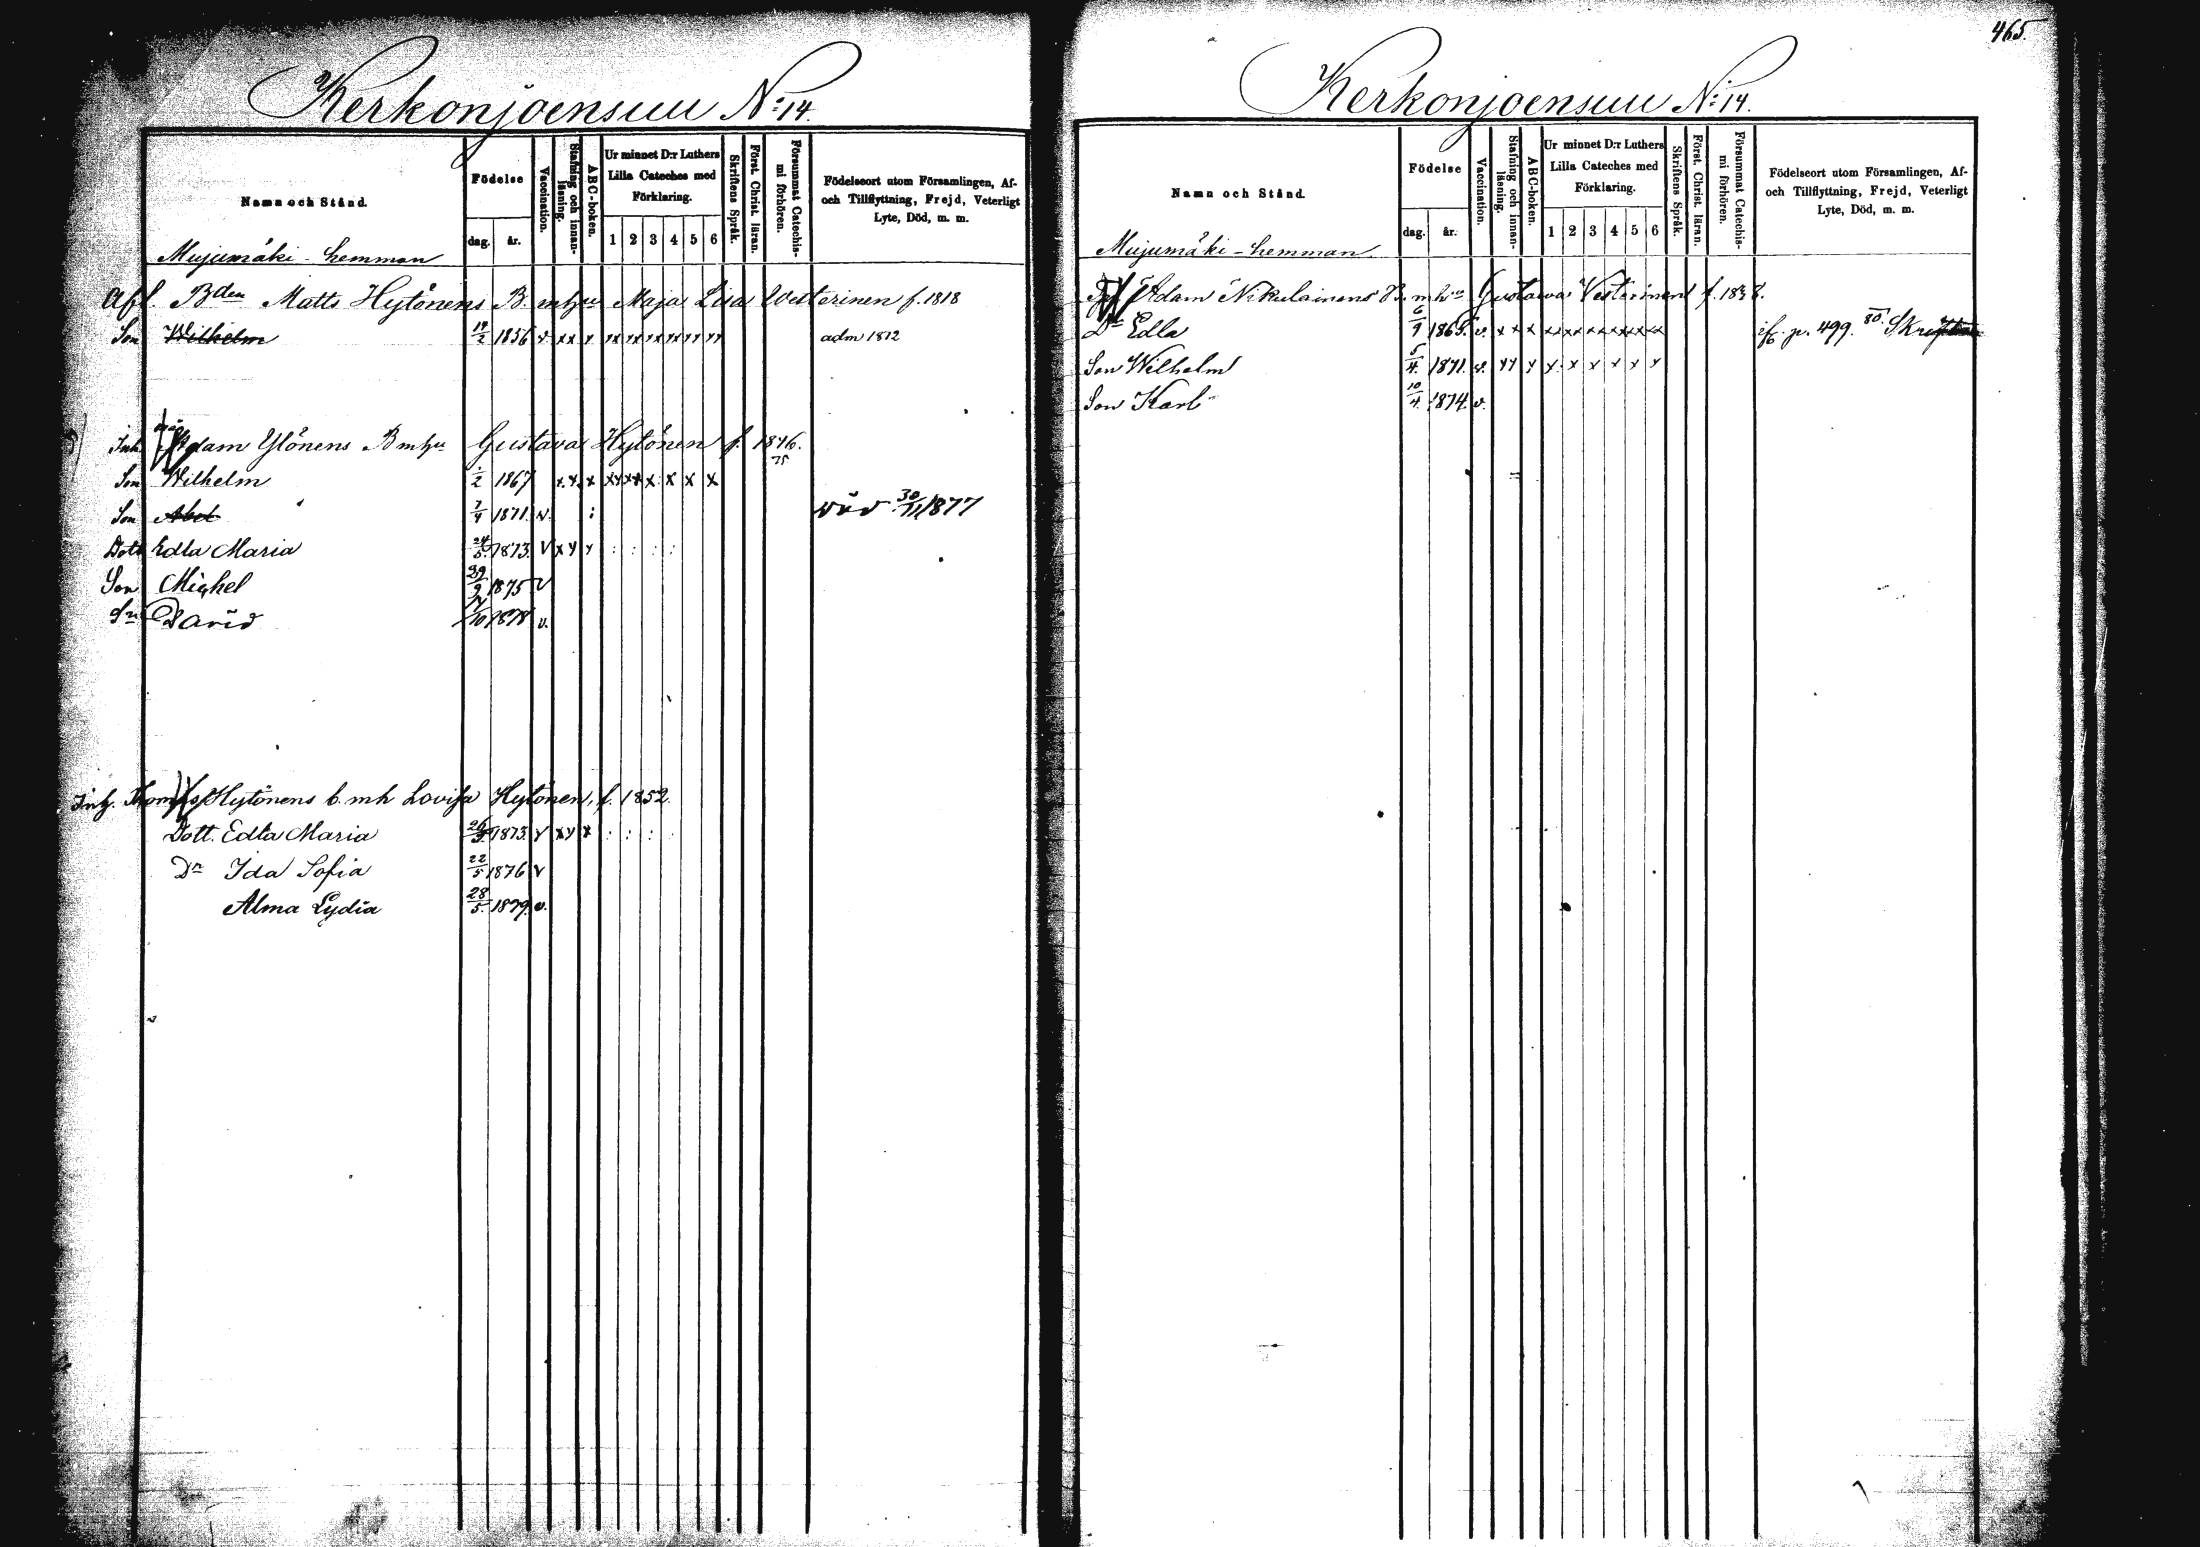 465.
Kerkonjoensuu N:14.
Namn och Stånd.
Födelse
dag. år.
Vaccination.
Stafning och innan-läsning.
ABC-boken.
Ur minnet D:r Luthers
Lilla Cateches med
Förklaring.
1 2 3 4 5 6
Skriftens Språk.
Först. Christ. läran.
Försummat Catechis-
mi förhören.
Födelseort utom Församlingen, Af-
och Tillflyttning, Frejd, Veterligt
Lyte, Död, m. m.
Mujumäki - hemman
Afl. Bden Matts Hytönens B. mhu Maja Lisa Westerinen f. 1818
Son Wilhelm 14/2 1856 v. xx x xx xx xx xx xx xx adm 1872
Inh. Adam Ylönens B mhu Gustava Hytönen f. 1846.
75
Son Wilhelm 1/2 1867 x x x xx xx x x x x
Son Abel 7/4 1871 v. : död 30/11 1877
Dott Edla Maria 24/5 1873. v x x x : : : :
Son Mickel 29/9 1875 v
Sn David 10 1878 v.
Inh. Thomas Hytönens b. mh Lovisa Hytönen, f. 1852.
Dott. Edla Maria 26 1873. v x x x : : : :
Dr Ida Sofia 22/5 1876 v
Alma Lydia 28/5 1879. v.
Kerkonjoensuu N:14.
Namn och Stånd.
Födelse
dag. år.
Vaccination.
Stafning och innan-läsning.
ABC-boken.
Ur minnet D:r Luthers
Lilla Cateches med
Förklaring.
1 2 3 4 5 6
Skriftens Språk.
Först. Christ. läran.
Försummat Catechis-
mi förhören.
Födelseort utom Församlingen, Af-
och Tillflyttning, Frejd, Veterligt
Lyte, Död, m. m.
Mujumäki - hemman.
Adam Nikulainens B. mhu Gustava Vesterinen f. 1838.
Dr Edla 6/9 1865. v. x x x xx xx xx xx xx xx jfr. p. 499. 80.
Son Wilhelm 5/4. 1871. v. x x x x x x x x x
Son Karl 10/4. 1874. v.